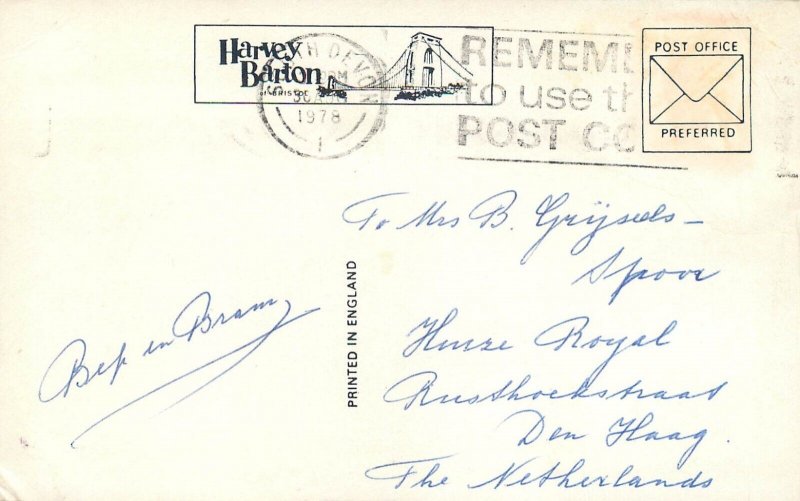 Harvey
Barton
of BRISTOL
TH DEVON
1978
REMEM
to use th
POST CO
POST OFFICE
PREFERRED
PRINTED IN ENGLAND
Bep en Bram
To Mrs B. Grijseels-
Spoor
Huize Royal
Rusthoekstraat
Den Haag.
The Netherlands